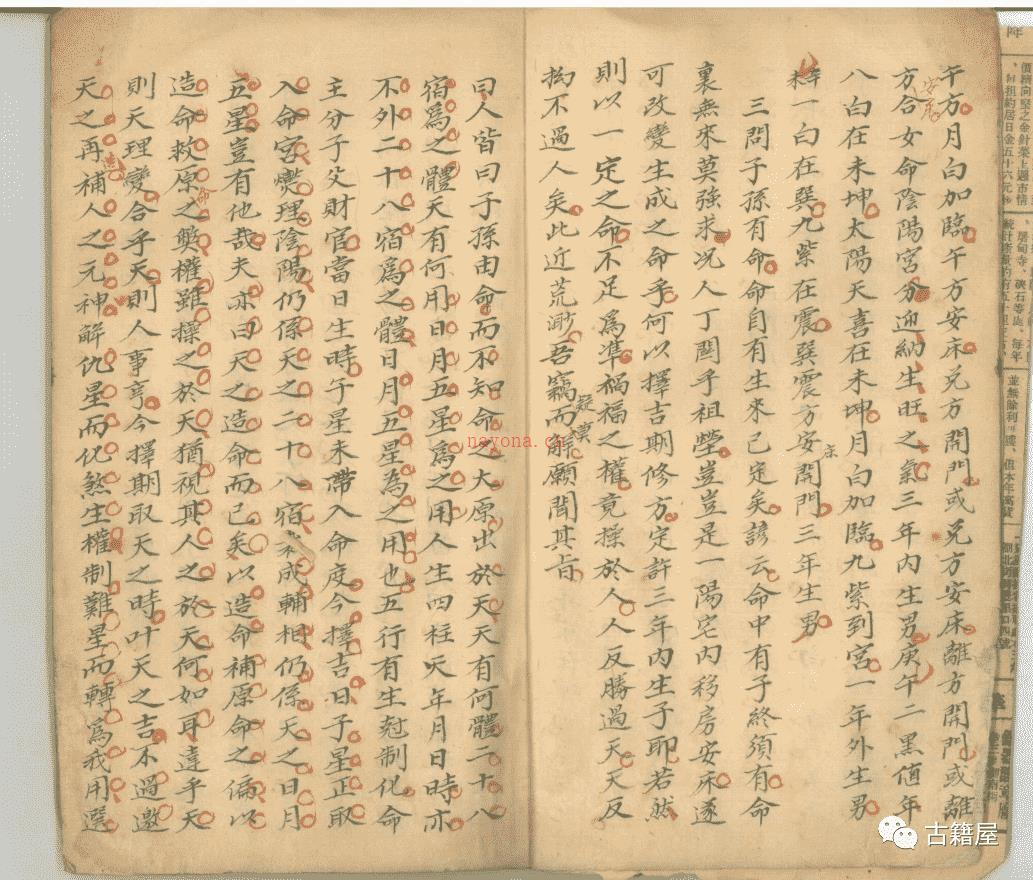 午方月白加臨午方安床兌方開門或兌方安床離方開門或離
方合女命陰陽宮分迎納生旺之氣三年內生男庚午二黑值年
安床
八白在未坤太陽天喜在未坤月白加臨九紫到宮一年外生男
辛未一白在巽九紫在震巽震方安開門三年生男
床
三問子孫有命命自有生來已定矣諺云命中有子終須有命
裏無來莫強求况人丁関乎祖塋豈豈是一陽宅內移房安床遂
可改變生成之命乎何以擇吉期修方定許三年內生子耶若然
則以一定之命不足爲準禍福之權竟操於人人反勝過天天反
拗不過人矣此近荒渺吾竊而解願聞其旨
疑
曰人皆曰子孫由命而不知命之大原出於天天有何體二十八
宿爲之體天有何用日月五星爲之用人生四柱天年月日時亦
不外二十八宿爲之體日月五星為之用也五行有生尅制化命
主分子父財官當日生時午星未帶入命度今擇吉日子星正取
入命宮爕理陰陽仍係天之二十八宿成輔相仍係天之日月
五星豈有他哉夫亦曰天之造命而已矣以造命補原命之偏以
造命救原之獘權雖操之於天猶視其人之於天何如耳違乎天
命
則天理變合乎天則人事亨今擇期取天之時叶天之吉不過邀
天之再補人之元神解仇星而化煞生權制難星而轉爲我用選
造
nayona.cn
古籍屋